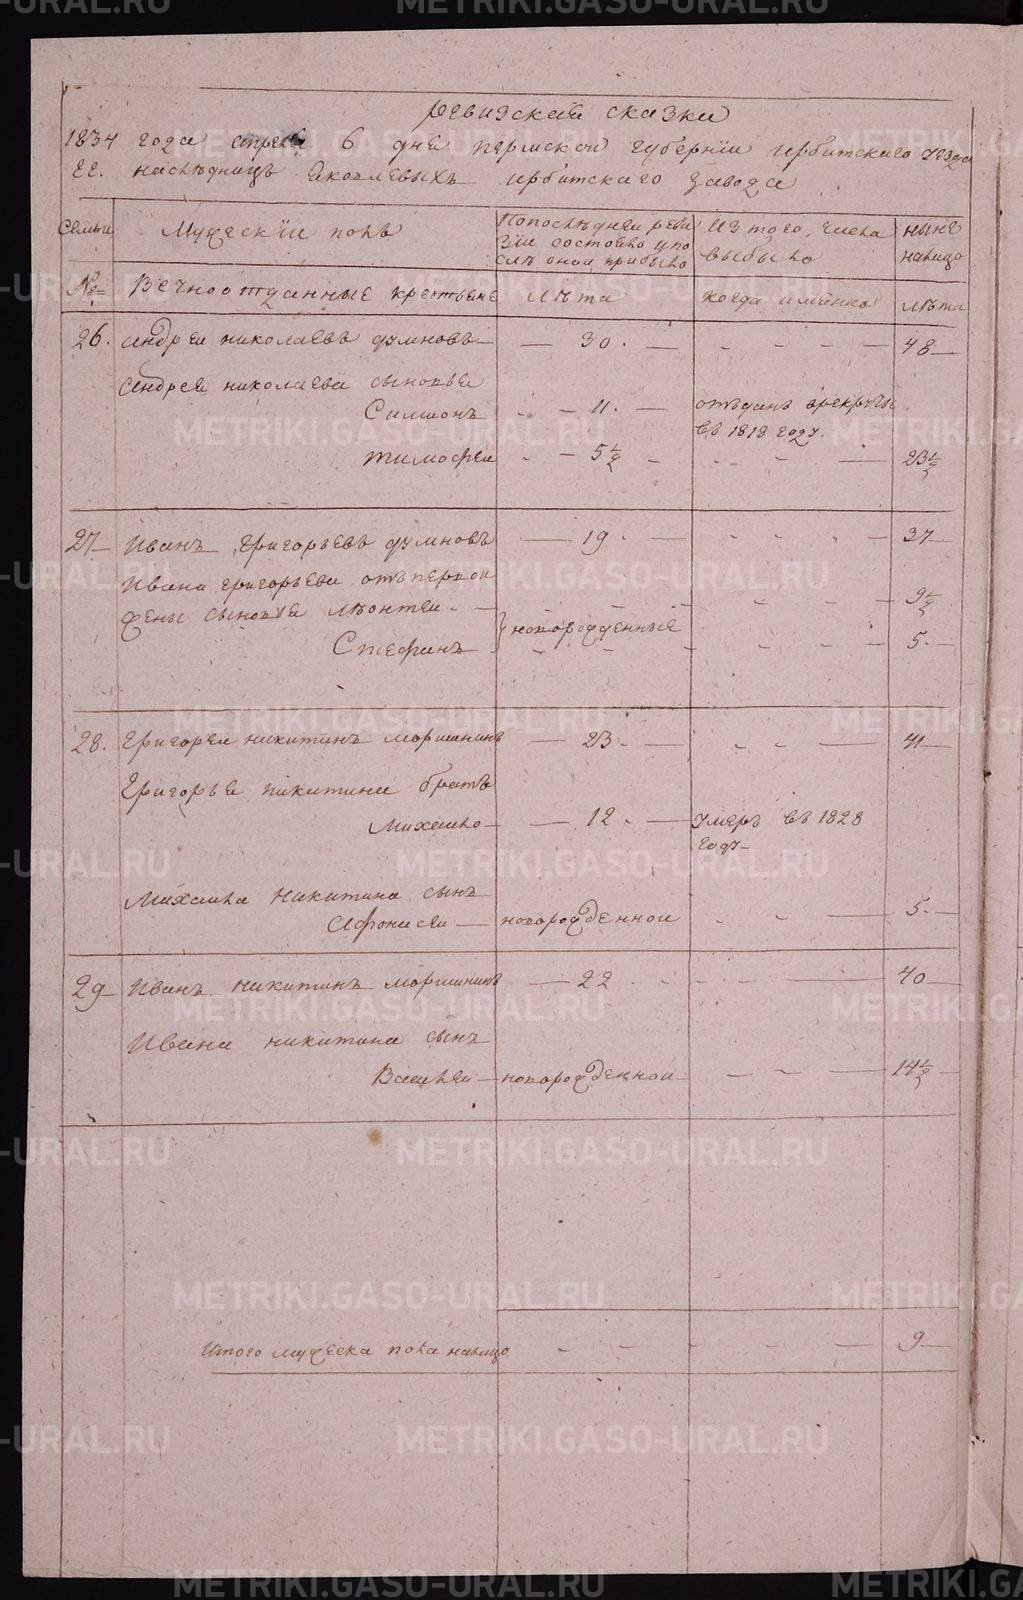 METRIKI.GASO-URAL.RU
ревизская сказка
1834 года апреля 6 дня пермской губернии ирбитского уезда
ГГ. наследницъ Яковлевыхъ ирбитского завода
Семьи Мужескiи полъ По последней ревизiи состояло и после онои прибыло Из того числа выбыло ныне налицо
№ Вечноотданные крестьяне Лета когда именно лета
26. Андреи николаевъ думновъ — 30. — - - - — 48 —
Андрея николаева сыновья
Симионъ - - 11. — отъданъ врекруты
въ 1818 году.
тимофеи - - 5½ - - - — 23½
27 — Иванъ григорьевъ думновъ — 19. - - - - 37 —
Ивана григорьева отъпервои
жены сыновья леонтеи - — - - - — 9½
новорожденные
Стефанъ - - - - - — 5. —
28. Григореи никитинъ моршининъ — 23. — - - — 41 —
Григорья никитина братъ
Михаило — — 12. — умеръ въ 1828
году —
Михаила Никитина сынъ
Афонасеи — новорожденнои - - — 5. —
29 — Иванъ никитинъ моршининъ — 22. - - - — 40 —
Ивана никитина сынъ
Василеи — новорожденнои - — - — 14½
Итого мужеска пола налицо - - - - — 9 —